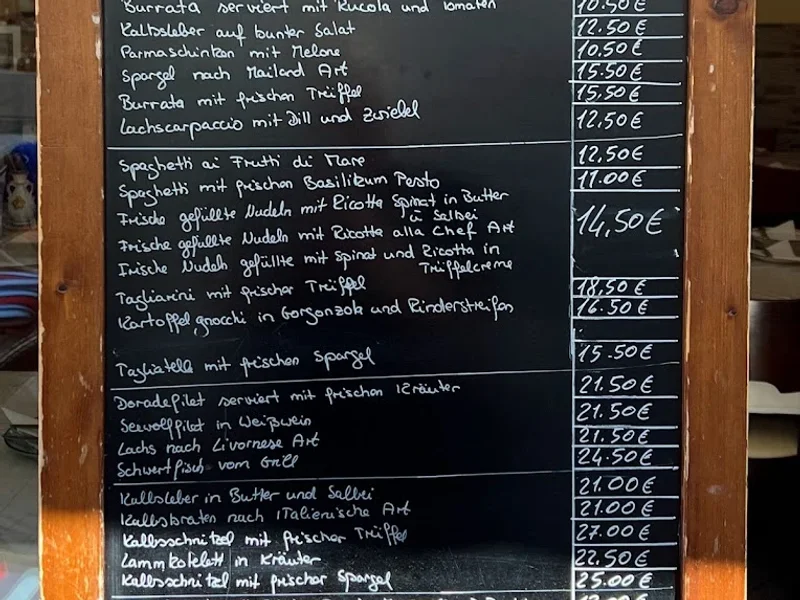 Burrata serviert mit Rucola und Tomaten 10.50€
Kalbsleber auf bunter Salat 12.50€
Parmaschinken mit Melone 10.50€
Spargel nach Mailand Art 15.50€
Burrata mit frischen Trüffel 15.50€
Lachscarpaccio mit Dill und Zwiebel 12.50€
Spaghetti ai Frutti di Mare 12.50€
Spaghetti mit frischen Basilikum Pesto 11.00€
Frische gefüllte Nudeln mit Ricotta Spinat in Butter
ü Salbei
Frische gefüllte Nudeln mit Ricotta alla Chef Art 14,50€
Frische Nudeln gefüllte mit Spinat und Ricotta in
Trüffelcreme
Tagliarini mit frischer Trüffel 18.50€
Kartoffelgnocchi in Gorgonzola und Rinderstreifen 16.50€
Tagliatelle mit frischen Spargel 15.50€
Doradefilet serviert mit frischen Kräuter 21.50€
Seewolffilet in Weißwein 21.50€
Lachs nach Livornese Art 21.50€
Schwertfisch vom Grill 24.50€
Kalbsleber in Butter und Salbei 21.00€
Kalbsbraten nach italienische Art 21.00€
Kalbsschnitzel mit frischer Trüffel 27.00€
Lammkotelett in Kräuter 22.50€
Kalbsschnitzel mit frischer Spargel 25.00€